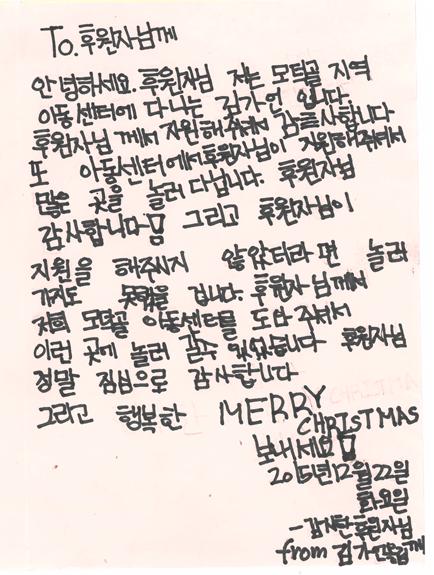 To. 후원자님께
안녕하세요. 후원자님 저는 모덕골 지역
아동센터에 다니는 김가언 입니다.
후원자님 께서 지원해주셔서 감르사합니다
또 아동센터에서후원자님이 지원해주셔서
많은 곳을 놀러다닙니다. 후원자님
감사합니다!! 그리고 후원자님이
지원을 해주시지 않았더라 면 놀러
가지도 못했을 겁니다. 후원자님께서
저희 모덕골 아동센터를 도와 주셔서
이런 곳에 놀러 갈수 있었습니다 후원자님
정말 짐심으로 감사합니다
그리고 행복한 MERRY
CHRISTMAS
보내세요!!
2015년12월22일
화요일
후원자님
from 김가언